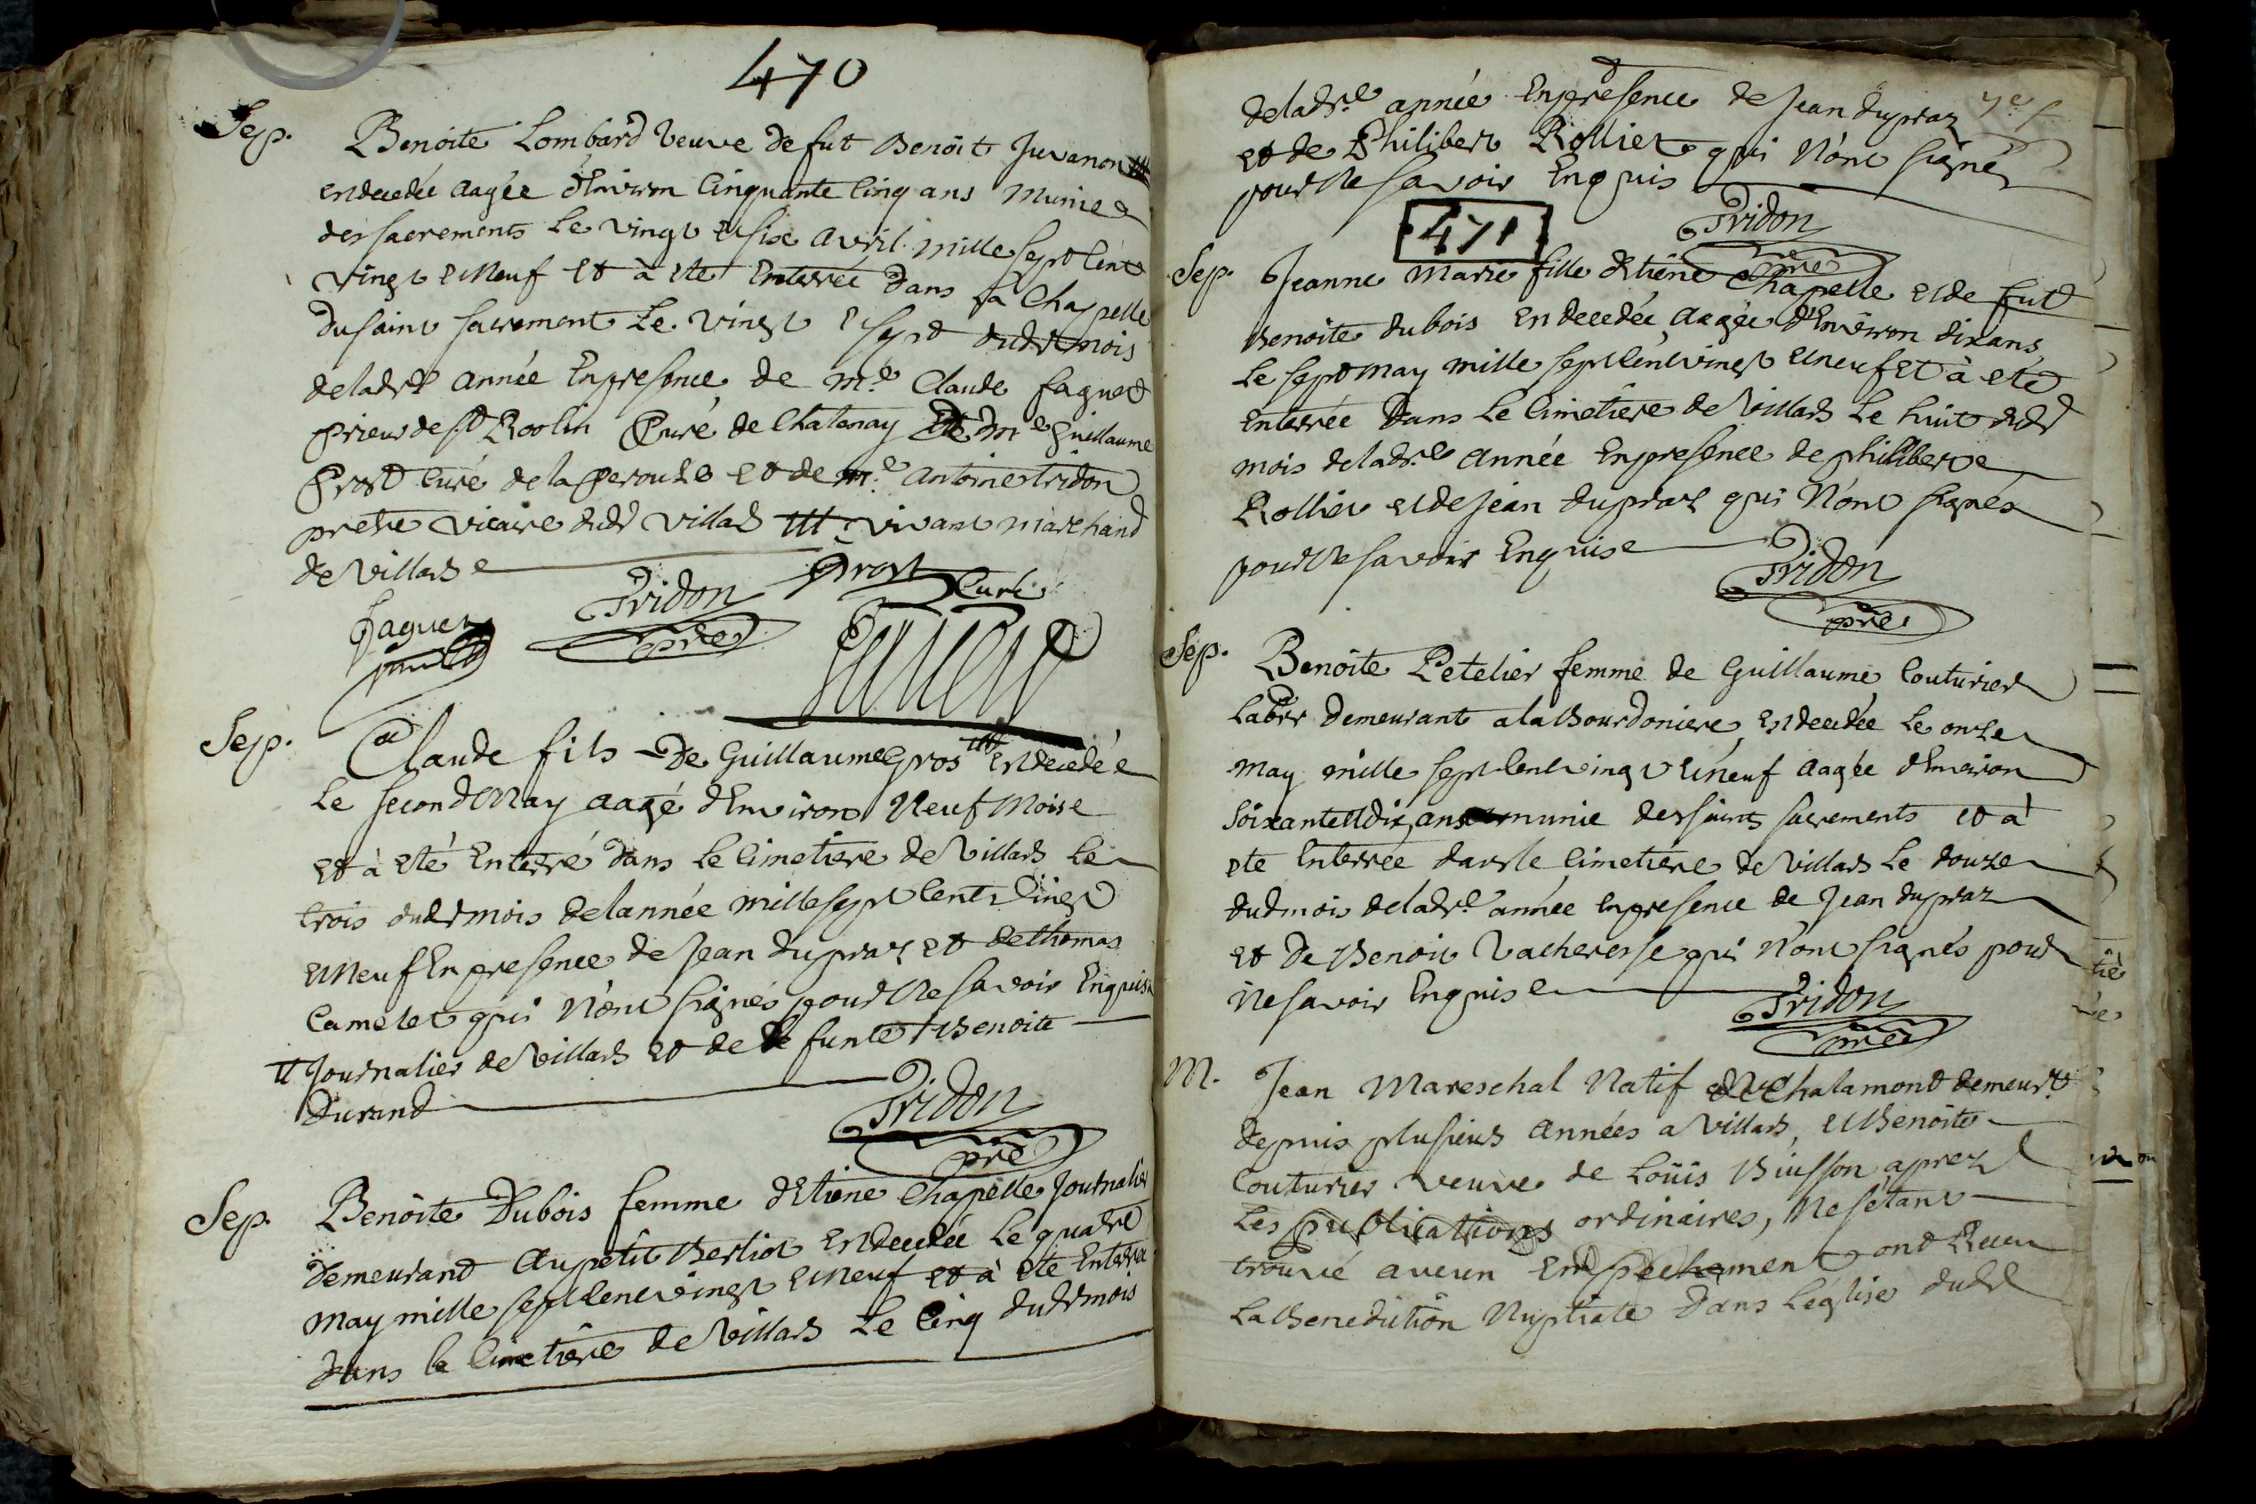 470
Sep. Benoite Lombard veuve de fut Benoit Juvanon
est decedée aagée d'Environ Cinquante Cinq ans Munie
des sacrements Le vingt et six avril mille sept Cent
vingt et Neuf et à ete Enterrée Dans La Chapelle
Du saint sacrement Le vingt et sept dudt mois
de ladte année En presence de mre Claude faguet
prieur de st Roolin Curé de Chatenay et de mre Guillaume
Prost Curé de la Perouze et de mre antoine tridon
pretre vicaire dudt villars vivant marchand
de villars
Prost
Curé
faguet
Tridon
pre
Sep. Claude fils De Guillaume Gros est decedé
Le second May aagé d'Environ Neuf Mois
et à eté Enterré dans Le Cimetiere de Villars Le
trois dudt mois de lannée mille sept Cent Vingt
et Neuf En presence de Jean dupraz et de thomas
Camelet qui N'ont signés pour Ne savoir Enquis
Journalier de villars et de de funte Benoite
Durand
Tridon
pre
Sep. Benoite Dubois femme d'Etiene Chapelle Journalier
Demeurant au petit Berliot est decedée Le quatre
May mille sept Cent vingt et Neuf et à ete Enterrée
dans le Cimetiere de Villars Le Cinq dudt mois
de ladte année En presence de Jean dupraz
et de Philibert Rollier qui N'ont signé
pour Ne savoir Enquis
Tridon
pre
471
Sep. Jeanne Marie fille d'Etiene Chapelle et de fut
Benoite dubois est decedée aagée d'Environ dix ans
Le sept may mille sept Cent vingt et neuf et à eté
Enterrée Dans Le Cimetiere de Villars Le huit dudt
mois de ladte année En presence de philibert
Rollier et de Jean dupraz qui N'ont signés
pour Ne savoir Enquis
Tridon
pre
Sep. Benoite Petelier femme de Guillaume Couturier
Labr Demeurant a la Bourdoniere est decedée Le onze
May mille sept Cent vingt et neuf aagée d'Environ
Soixante et dix ans munie des saints sacrements et à
ete Enterrée dans le Cimetiere de Villars Le douze
dud mois de ladte année En presence de Jean dupraz
et De Benoit Vacheresse qui N'ont signés pour
Ne savoir Enquis
Tridon
pre
M. Jean Mareschal Natif de Chalamont demeurt
depuis plusieurs années a Villars, et Benoite
Couturier veuve de Loüis Buisson, aprez
Les publications ordinaires, Ne s'etant
trouvé aucun Empechement ont Receu
La Benediction Nuptiale Dans L'église dudt